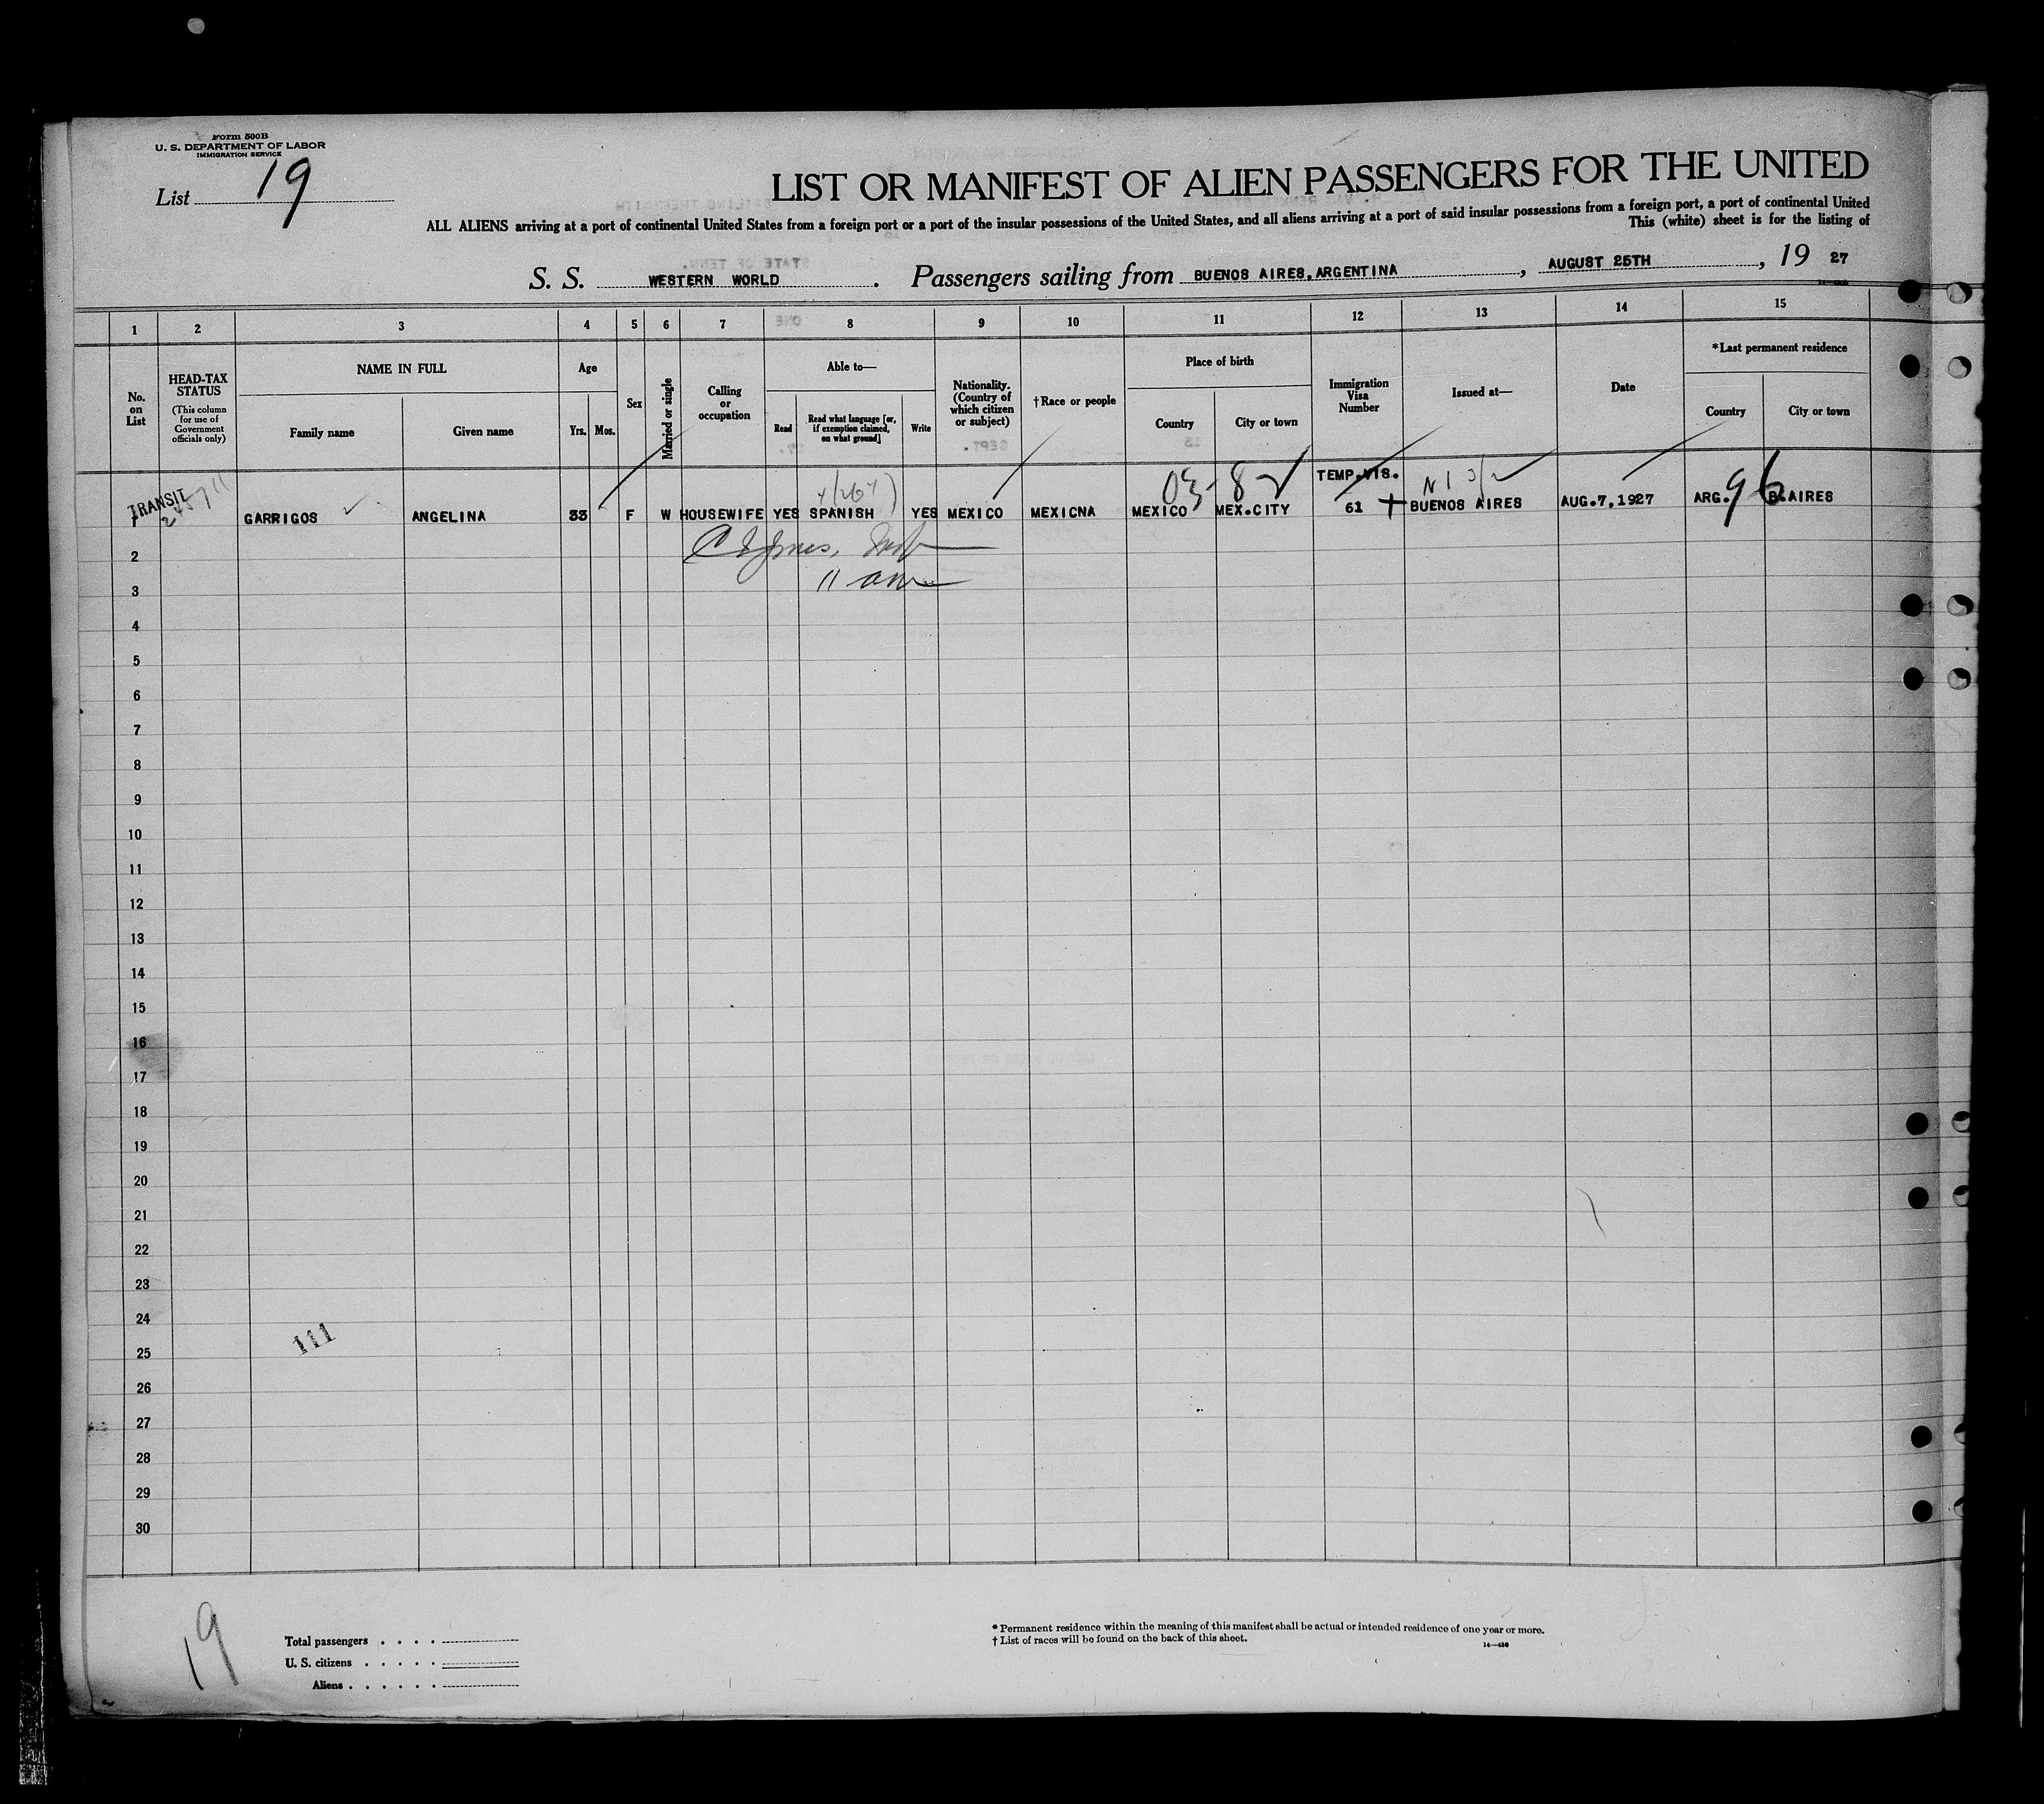 Form 500B
U. S. DEPARTMENT OF LABOR
IMMIGRATION SERVICE
List 19
LIST OR MANIFEST OF ALIEN PASSENGERS FOR THE UNITED
ALL ALIENS arriving at a port of continental United States from a foreign port or a port of the insular possessions of the United States, and all aliens arriving at a port of said insular possessions from a foreign port, a port of continental United
This (white) sheet is for the listing of
S. S. WESTERN WORLD. Passengers sailing from BUENOS AIRES, ARGENTINA, AUGUST 25TH, 19 27
1 2 3 4 5 6 7 8 9 10 11 12 13 14 15
No. on List
HEAD-TAX STATUS
(This column for use of Government officials only)
NAME IN FULL
Family name
Given name
Age
Yrs. Mos.
Sex
Married or single
Calling or occupation
Able to—
Read
Read what language [or, if exemption claimed, on what ground]
Write
Nationality. (Country of which citizen or subject)
†Race or people
Place of birth
Country
City or town
Immigration Visa Number
Issued at—
Date
*Last permanent residence
Country
City or town
TRANSIT
TEMP.VIS.
03-82
1 GARRIGOS ANGELINA 33 F W HOUSEWIFE YES SPANISH YES MEXICO MEXICNA MEXICO MEX.CITY 61 BUENOS AIRES AUG.7,1927 ARG. 96 B.AIRES
2
11 am
3
4
5
6
7
8
9
10
11
12
13
14
15
16
17
18
19
20
21
22
23
24
111
25
26
27
28
29
30
19
Total passengers . . . .
U. S. citizens . . . . .
Aliens . . . . . .
* Permanent residence within the meaning of this manifest shall be actual or intended residence of one year or more.
† List of races will be found on the back of this sheet.